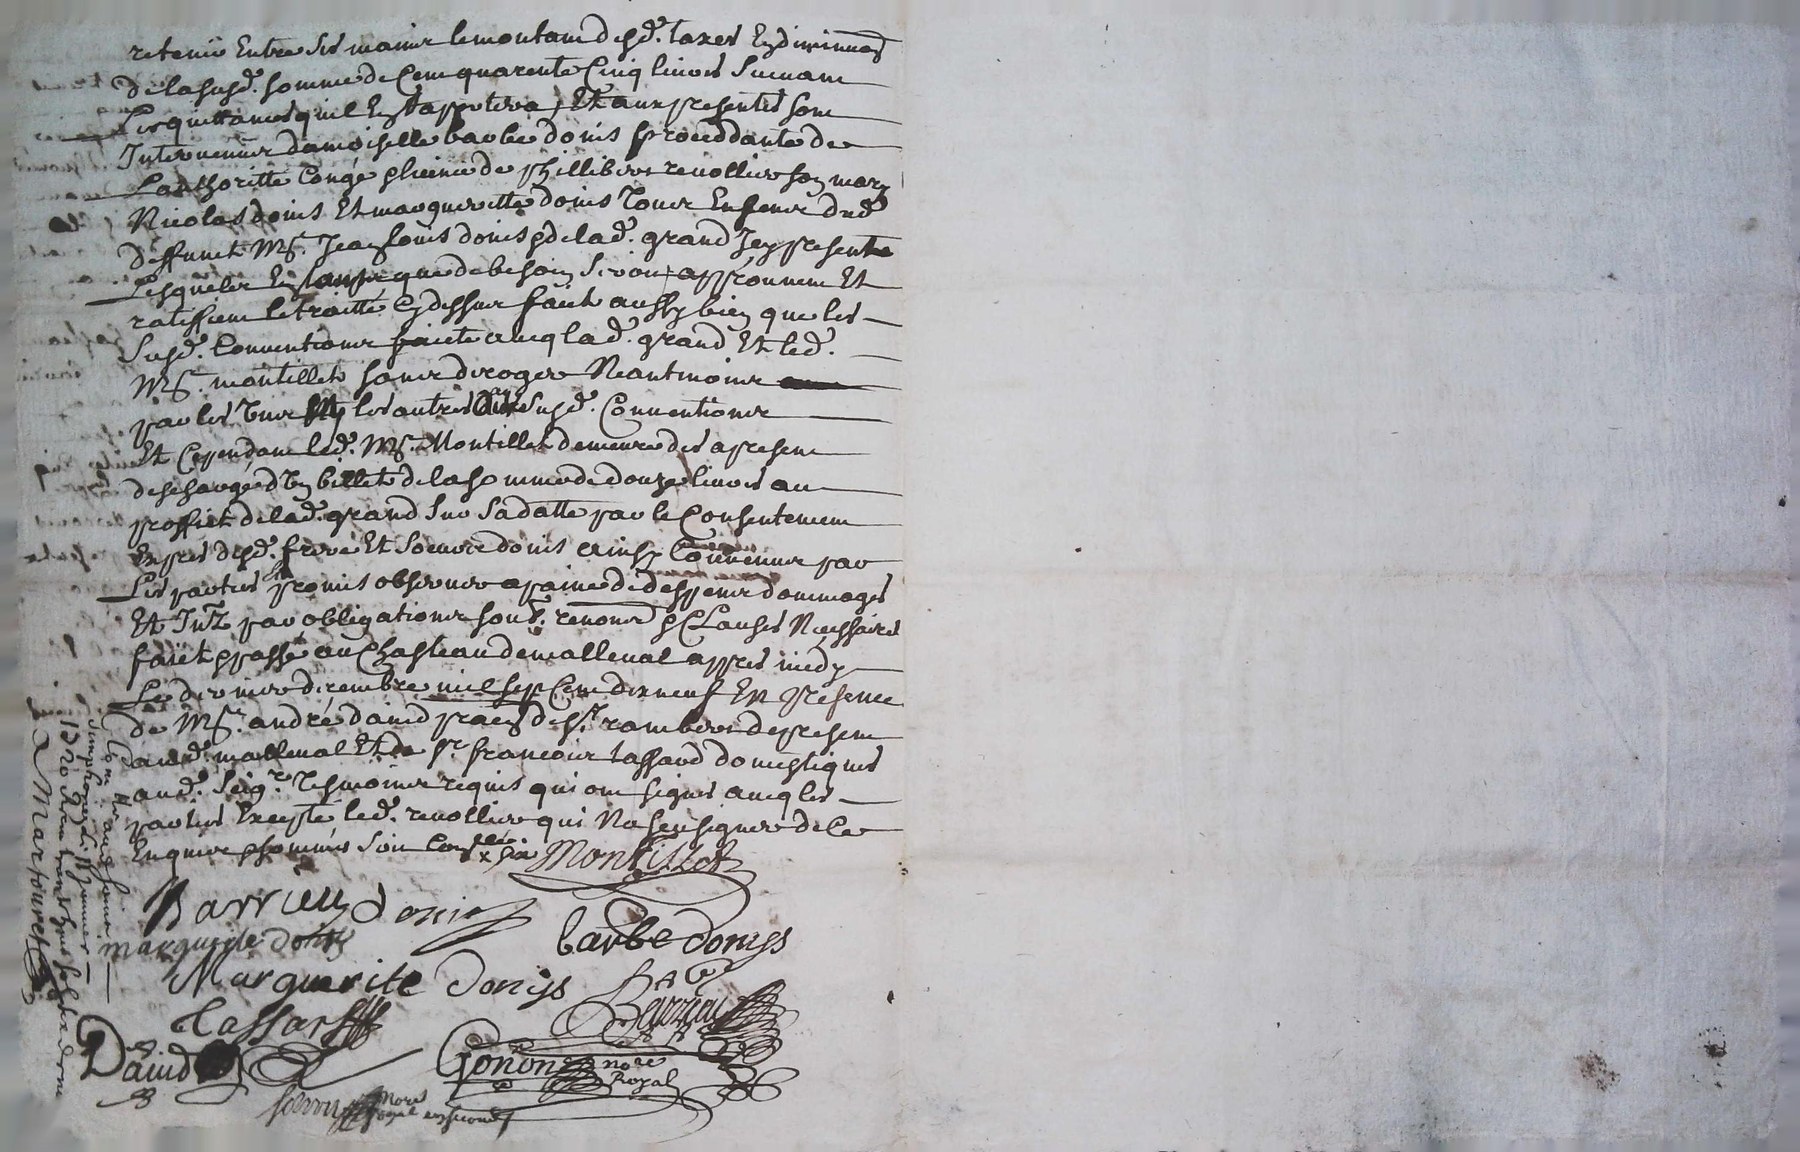 retenir Entre ses mains le montant desd. taxes En diminuaon
De lasusd. somme de Cent quarente Cinq livres suivant
Les quittances quil En rapportera, Et aux presentes sont
Intervenues damoiselle barbe donis proceddante de
Lauthoritte Congé et licence de phillibert revollier son mary
Nicolas donis Et margueritte donis tous Enfans dud.
deffunct Mr. Jean louis donis et de lad. grand Icy presente
Lesquels En tant que de besoin seroit approuvent Et
ratiffient le traitté Cy dessus faict aussy bien que les
susd. Conventions faicte avecq lad. grand Et led.
Mr. montillet sans deroger Neantmoins
par les unes les autres susd. Conventions
Et Cependant led. Mr. Montillet demeure des apresent
deschargé d'un billet de la somme de douze livres au
proffict de lad. grand sur sa datte par le Consentement
Expres desd. frere Et soeurs donis ainsy Convenus par
Les parties promis observer a paine de despens dommages
Et Intz par obligations soubs. renoncon et Clauses Necessaires
faict et passé au Chasteau de mallevalappres midy
Le dernier decembre mil sept Cent dix neuf En presence
de Mr. andré david de st rambert de present
aud. malleval Et de sr. francois tassard domestiques
aud. seigr. tesmoins requis qui ont signés avecq les
parties Excepté led. revollier qui Na sceu signer de Ce
Enquis et sommés soit
Montillet
Barrieu donis
marguerite donis
barbe donys
Marguerite donys
Tassard
Barrieu
David
Gonon nore
Royal
nore
royal
1720
Martouret